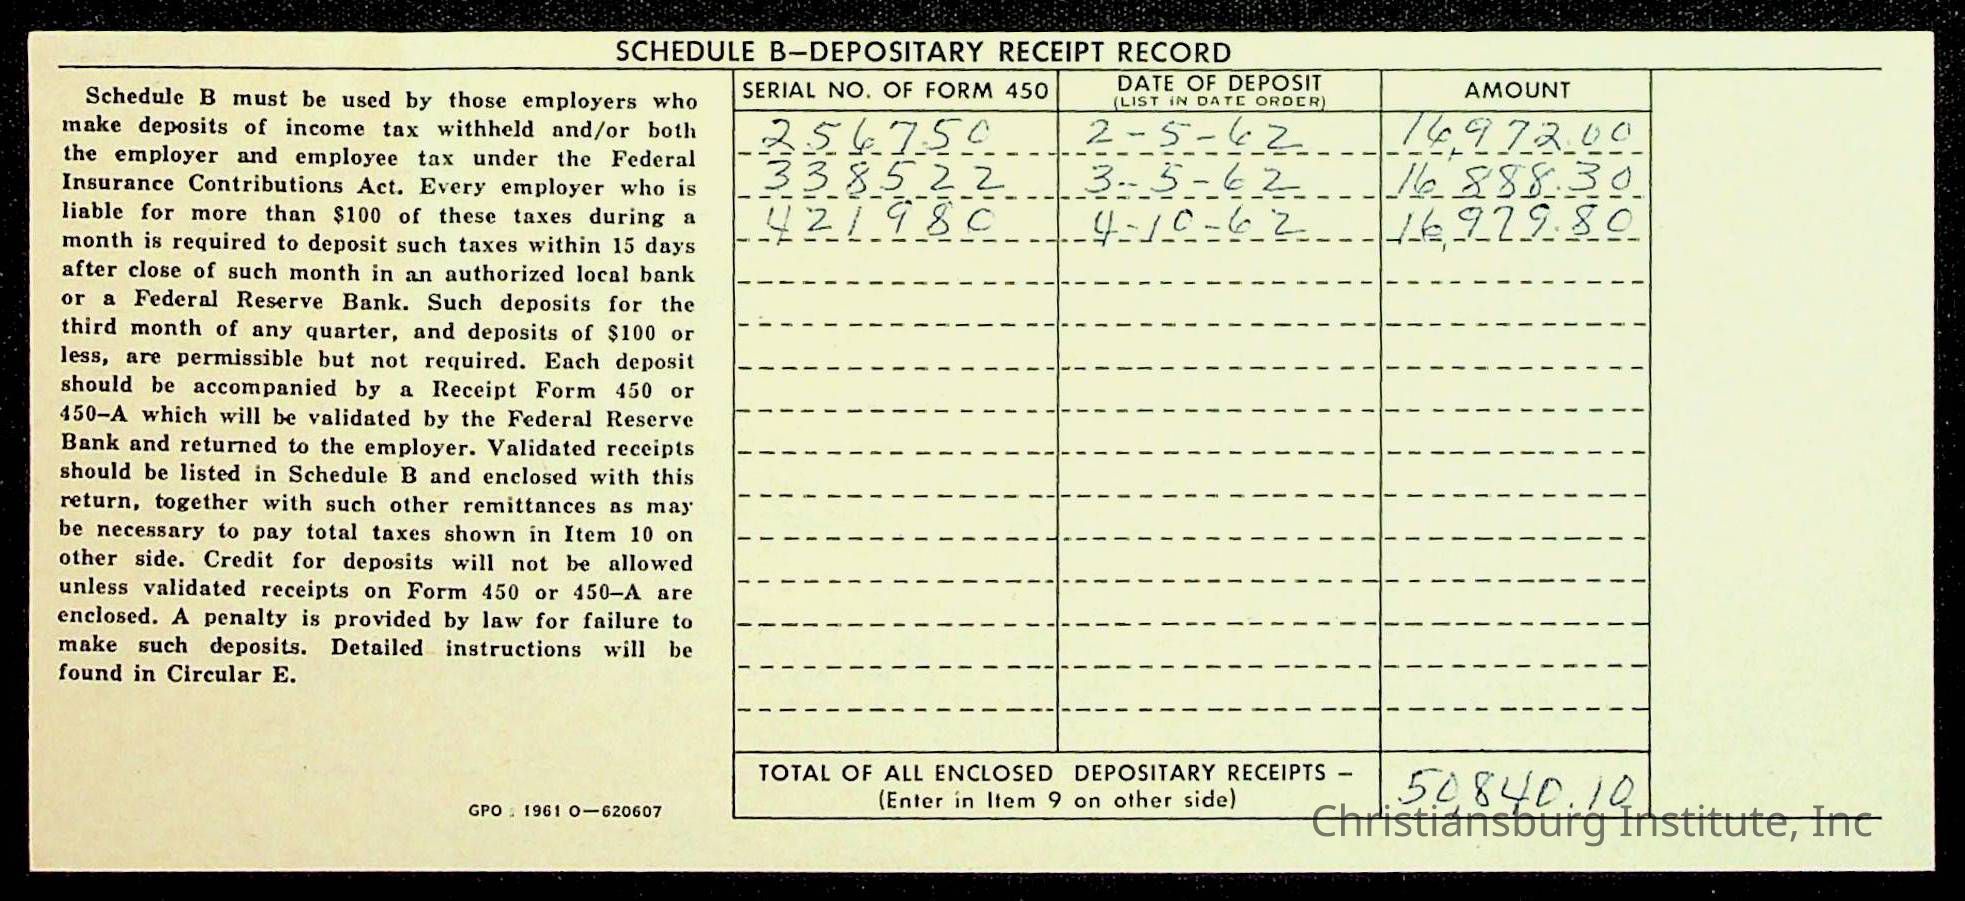 SCHEDULE B—DEPOSITARY RECEIPT RECORD
Schedule B must be used by those employers who
make deposits of income tax withheld and/or both
the employer and employee tax under the Federal
Insurance Contributions Act. Every employer who is
liable for more than $100 of these taxes during a
month is required to deposit such taxes within 15 days
after close of such month in an authorized local bank
or a Federal Reserve Bank. Such deposits for the
third month of any quarter, and deposits of $100 or
less, are permissible but not required. Each deposit
should be accompanied by a Receipt Form 450 or
450–A which will be validated by the Federal Reserve
Bank and returned to the employer. Validated receipts
should be listed in Schedule B and enclosed with this
return, together with such other remittances as may
be necessary to pay total taxes shown in Item 10 on
other side. Credit for deposits will not be allowed
unless validated receipts on Form 450 or 450–A are
enclosed. A penalty is provided by law for failure to
make such deposits. Detailed instructions will be
found in Circular E.
GPO : 1961 O—620607
SERIAL NO. OF FORM 450 DATE OF DEPOSIT AMOUNT
(LIST IN DATE ORDER)
256750 2-5-62 16,972.00
338522 3-5-62 16 888.30
421980 4-10-62 16,979.80
TOTAL OF ALL ENCLOSED DEPOSITARY RECEIPTS – 50,840.10
(Enter in Item 9 on other side)
Christiansburg Institute, Inc